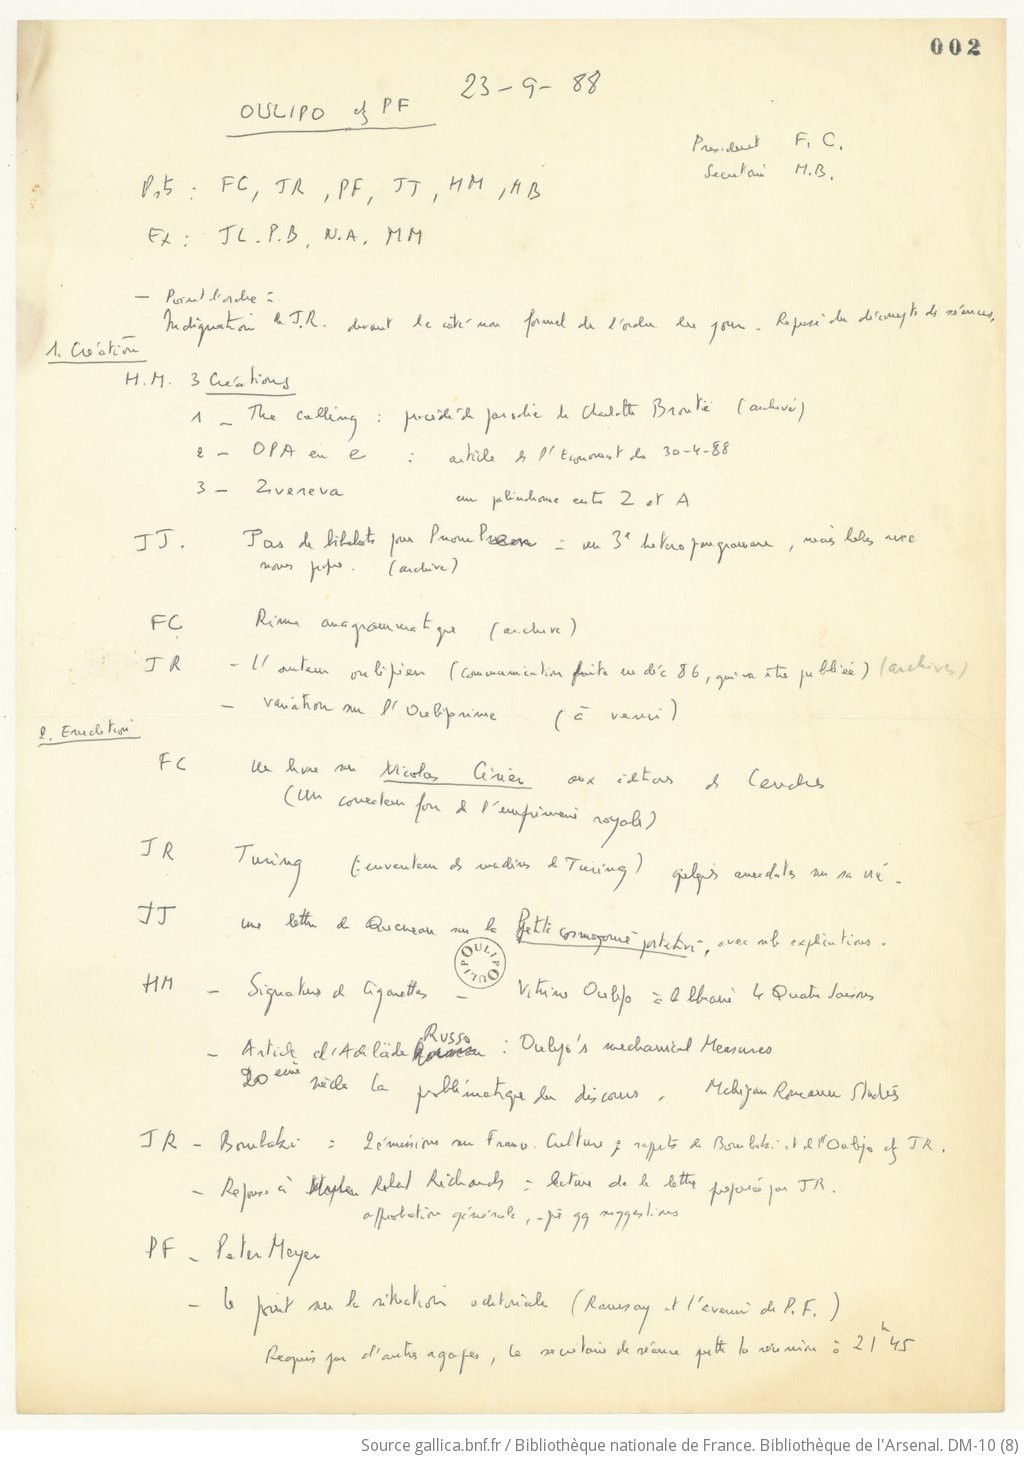 002
23-9-88
OULIPO chez PF
President F.C.
Secretaire M.B.
Pts : FC, JR, PF, JJ, HM, MB
Ex : JL. P.B, N.A, MM
- Point d'ordre :
Indignation de J.R. devant le côté non formel de l'ordre du jour. Refuse du décompte de séances.
1. Création
H.M. 3 Créations
1 - The calling : procédé de parodie de Charlotte Brontë (archivé)
2 - OPA en e : article de l'Economist du 30-4-88
3 - Ziveneva un palindrome entre Z et A
JJ. Pas de bibelots pour Pnom : un 3e hétéropangramme, mais belles avec
noms propre. (archive)
FC Rime anagrammatique (archive)
JR - L'auteur oulipien (communication faite en déc 86, qui va être publiée) (archives)
- variation sur l'Ouliprime (à venir)
2. Erudition
FC Un livre sur Nicolas Cirier aux éditions des Cendres
(Un correcteur fou de l'imprimerie royale)
JR Turing (inventeur des machines de Turing) quelques anecdotes sur sa vie.
JJ une lettre de Queneau sur la Petite cosmogonie portative, avec explications.
OULIPO OULIPO
HM - Signature de Cigarettes - Vitrine Oulipo à la librairie le Quatre Saisons
- Article d'Adélaïde Russo : Oulipo's mechanical Measures
20eme siècle La problématique du discours, Michigan Romance Studies
JR - Bourbaki : 2 émissions sur France-Culture ; rapports de Bourbaki et de l'Oulipo chez JR.
- Reponse à Robert Richards : lecture de la lettre préparée par JR.
approbation générale, qq suggestions
PF - Peter Meyer
- Le point sur la situation éditoriale (Ramsay et l'avenir de P.F.)
Requis par d'autres agapes, le secrétaire de séance quitte la réunion à 21h45
Source gallica.bnf.fr / Bibliothèque nationale de France. Bibliothèque de l'Arsenal. DM-10 (8)